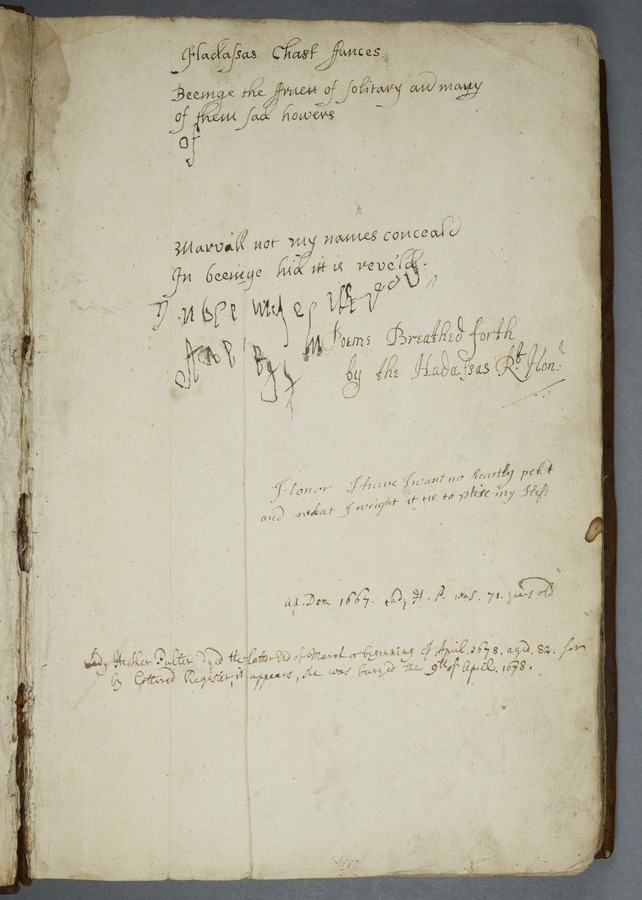 Hadassas Chast Fances
Beeinge the fruett of solitary and many
of them sad howers
of
Marvill not my names conceald
In beeinge hid itt is reveild.
Poems Breathed forth
by the Hadassas Rt. Hon:
Honor I have I want no Hearthy pellt
and what I wright it tis to plese my Selft
An. Dom 1667. Lady H. P. was. 71. years old
Lady Heshter Pulter Dyed the latter End of March or beginning of April. 1678. aged. 82. for
by Cottered Register, it appears, she was buryed the 9th of April. 1678.